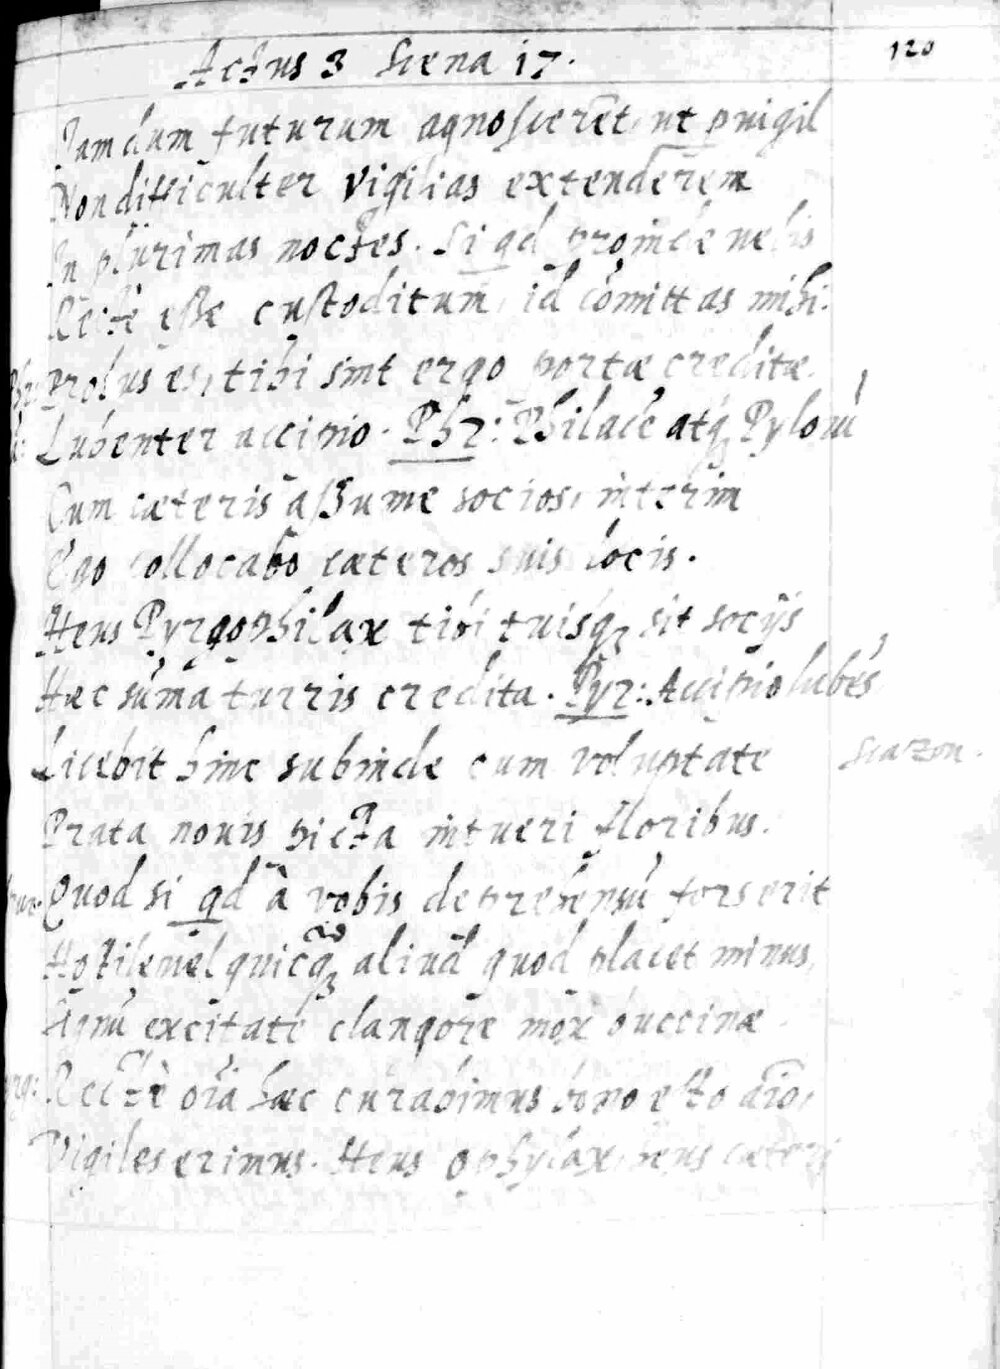 Actus 3 Scena 17.
120
Jam dum futurum agnosceret, ut pvigil
Non difficulter vigilias extenderem
In plurimas noctes. Si qd proinde velis
Recte esse custoditum, id comittas mihi.
Probus es, tibi sint ergo portæ creditæ.
Lubenter accipio. Phr: Philace atq Pyloru
Cum cæteris assume socios, interim
Ego collocabo cæteros suis locis.
Heus Pyrgophilax tibi tuisq sit socijs
Hæc suma turris credita. Pyr: Accipio lubēs
Licebit hinc subinde cum voluptate Scazon.
Prata novis picta intueri floribus.
Quod si qd à vobis deprehensū fors erit
Hostile vel quicq aliud quod placet minus,
Signū excitate clangore mox buccinæ
Rectè oīa hæc curabimus bono esto aīo,
Vigiles erimus. Heus ophylax, heus cæteri